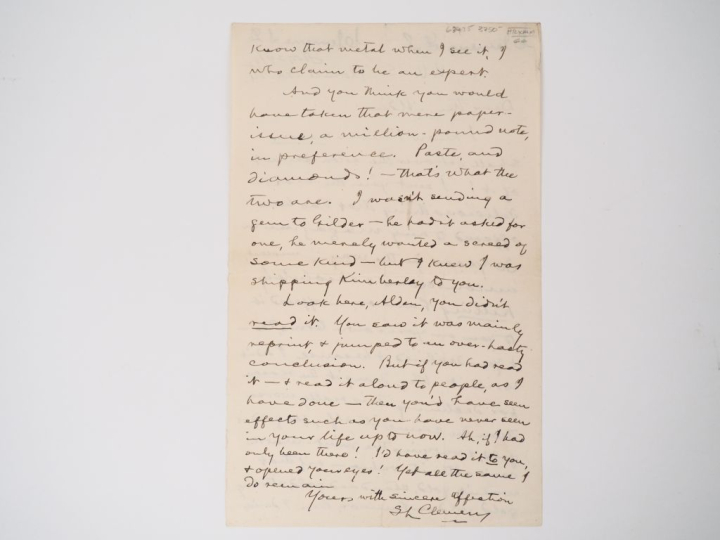 know that metal when I see it, I
who claim to be an expert.
And you think you would
have taken that mere paper-
issue, a million-pound note,
in preference. Paste, and
diamonds! — that's what the
two are. I wasn't sending a
gem to Gilder — he hadn't asked for
one, he merely wanted a screed of
some kind — but I knew I was
shipping Kimberley to you.
Look here, Alden, you didn't
read it. You saw it was mainly
reprint, & jumped to an over-hasty
conclusion. But if you had read
it — & read it aloud to people, as I
have done — then you'd have seen
effects such as you have never seen
in your life up to now. Ah, if I had
only been there! I'd have read it to you,
& opened your eyes! Yet all the same I
do remain
Yours with sincere affection
SL Clemens